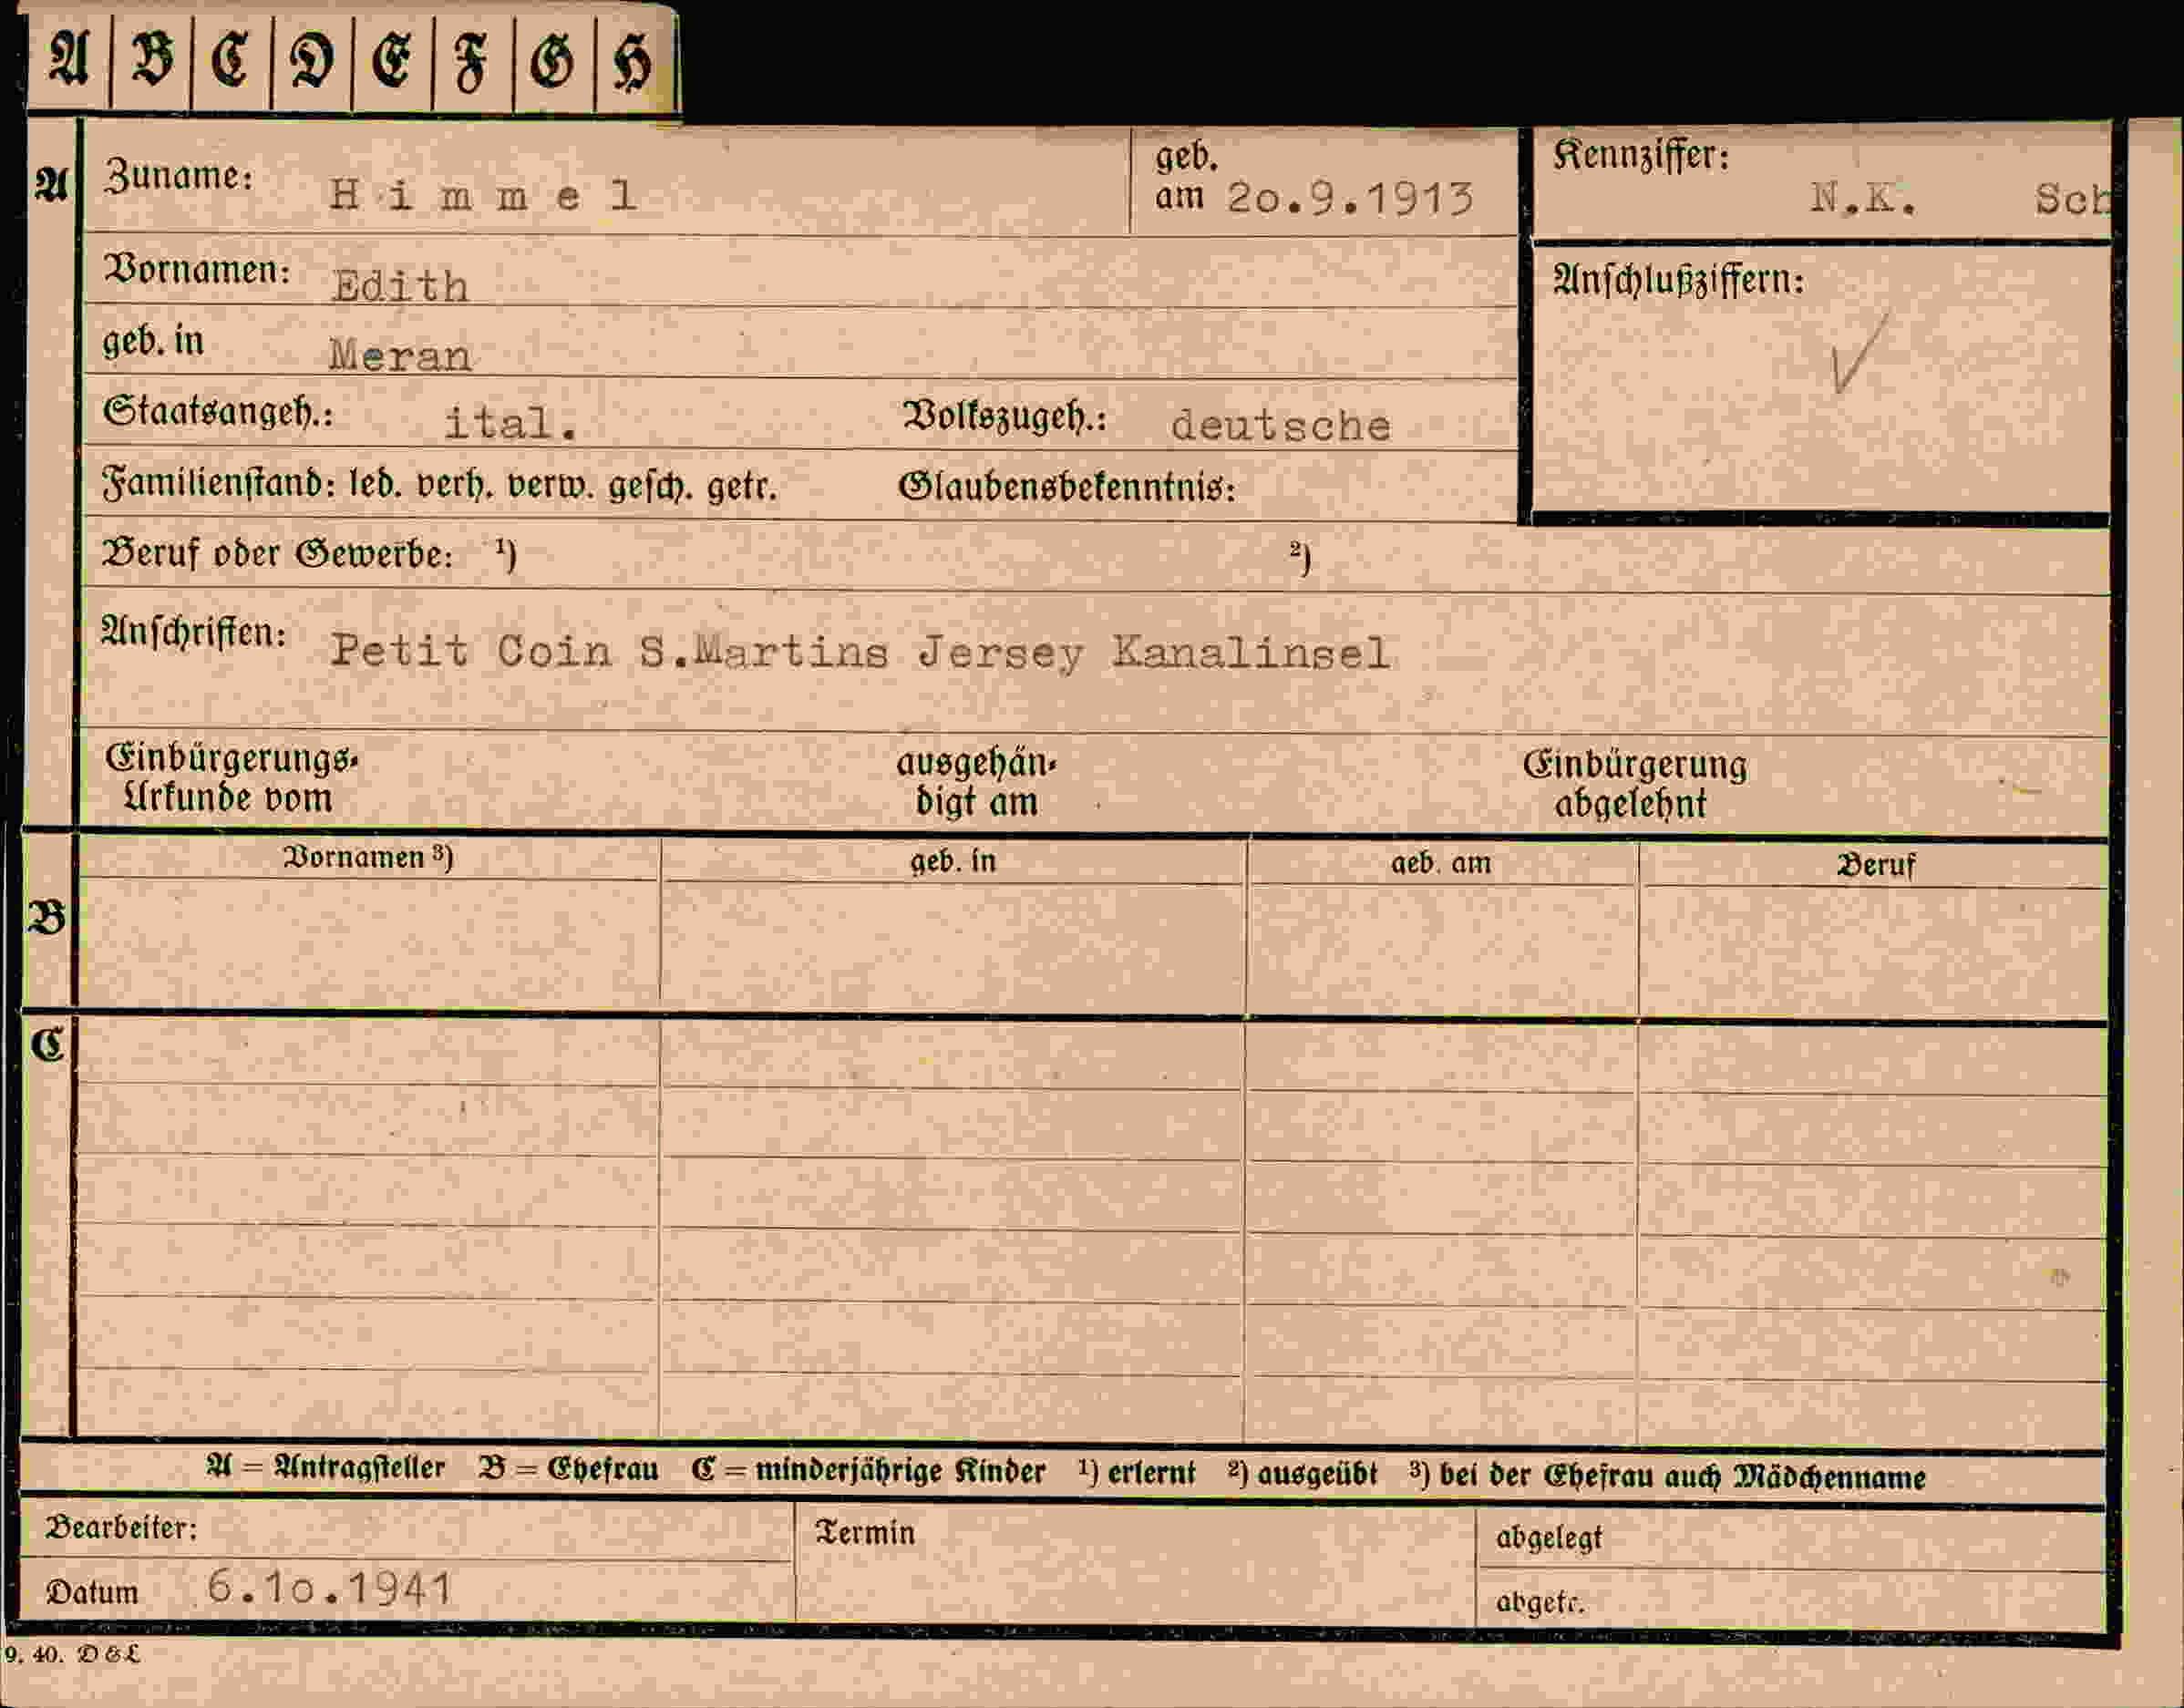 A B C D E F G H
A Zuname: Himmel geb. am 2o.9.1913 Kennziffer: N.K. Sch
Vornamen: Edith
Anschlußziffern:
geb. in Meran
Staatsangeh.: ital. Volkszugeh.: deutsche
Familienstand: led. verh. verw. gesch. getr. Glaubensbekenntnis:
Beruf oder Gewerbe: ¹) ²)
Anschriften: Petit Coin S.Martins Jersey Kanalinsel
Einbürgerungs- ausgehän- Einbürgerung
Urkunde vom digt am abgelehnt
Vornamen ³) geb. in geb. am Beruf
B
C
A = Antragsteller B = Ehefrau C = minderjährige Kinder ¹) erlernt ²) ausgeübt ³) bei der Ehefrau auch Mädchenname
Bearbeiter: Termin abgelegt
Datum 6.1o.1941 abgetr.
9. 40. D & L